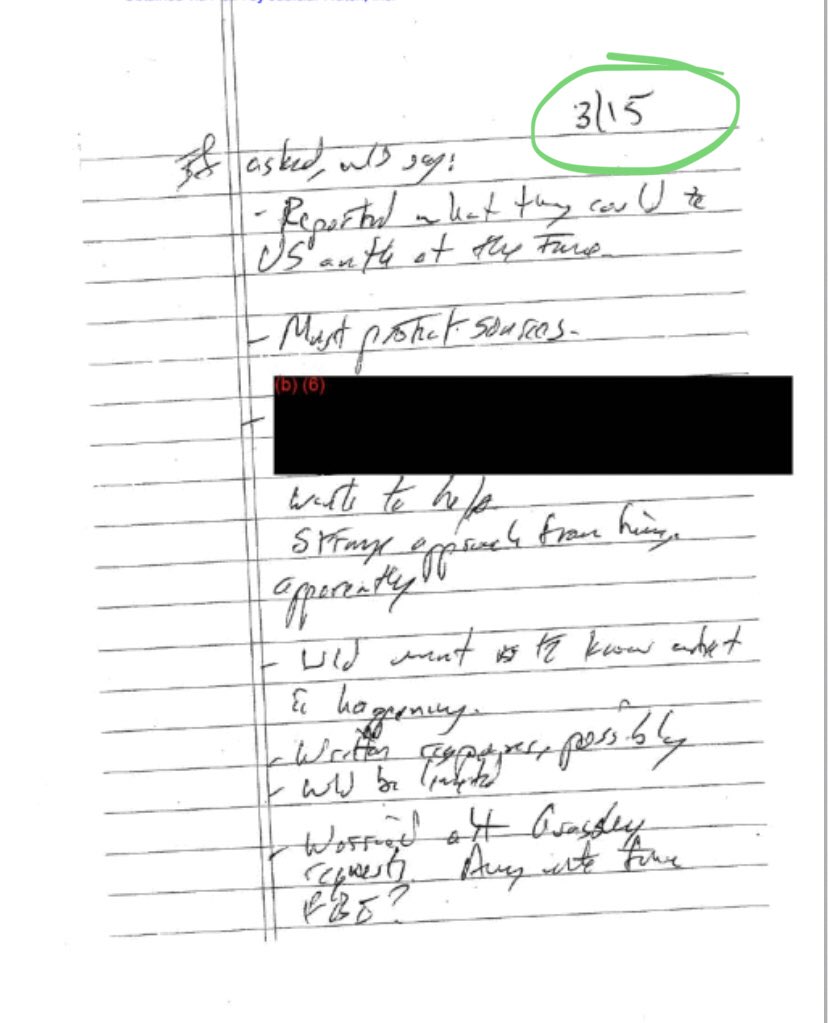 3/15
If asked, wld say:
- Reported what they could to
US auth at the time.
- Must protect sources.
(b) (6)
-
wants to help
Strange approach from him,
apparently
- Wld want us to know what
is happening.
- Written responses, possibly
- wld be limited
- Worried abt Grassley
requests. Any
FBI?